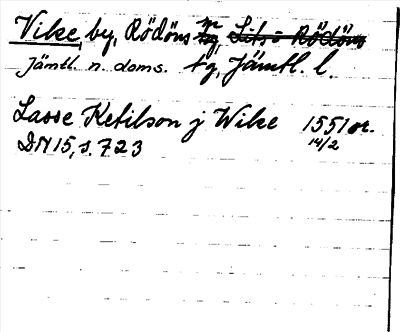 Vike, by, Rödöns sn, Lits o Rödöns
Jämtl. n. doms. tg, Jämtl. l.
Lasse Ketilson j Wike 1551 or.
DN 15, s. 723 14/2